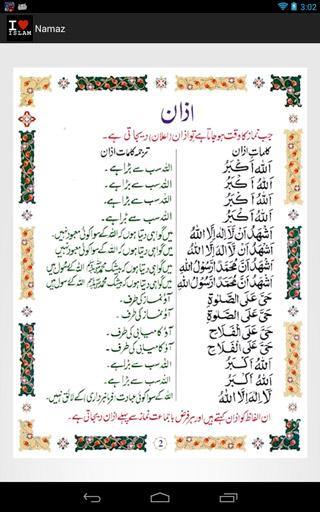 3:02
I ♥ ISLAM
Namaz
اذان
جب نماز کا وقت ہو جاتا ہے تو اذان (اعلان) دیجاتی ہے۔
کلماتِ اذان ترجمہ کلماتِ اذان
اَللهُ اَكْبَرُ اللہ سب سے بڑا ہے۔
اَللهُ اَكْبَرُ اللہ سب سے بڑا ہے۔
اَللهُ اَكْبَرُ اللہ سب سے بڑا ہے۔
اَللهُ اَكْبَرُ اللہ سب سے بڑا ہے۔
اَشْهَدُ اَنْ لَّا اِلٰهَ اِلَّا اللهُ میں گواہی دیتا ہوں کہ اللہ کے سوا کوئی معبود نہیں۔
اَشْهَدُ اَنْ لَّا اِلٰهَ اِلَّا اللهُ میں گواہی دیتا ہوں کہ اللہ کے سوا کوئی معبود نہیں۔
اَشْهَدُ اَنَّ مُحَمَّدًا رَّسُوْلُ اللهِ میں گواہی دیتا ہوں کہ بیشک محمد ﷺ اللہ کے رسول ہیں
اَشْهَدُ اَنَّ مُحَمَّدًا رَّسُوْلُ اللهِ میں گواہی دیتا ہوں کہ بیشک محمد ﷺ اللہ کے رسول ہیں
حَىَّ عَلَى الصَّلٰوةِ آؤ نماز کی طرف۔
حَىَّ عَلَى الصَّلٰوةِ آؤ نماز کی طرف۔
حَىَّ عَلَى الْفَلَاحِ آؤ کامیابی کی طرف۔
حَىَّ عَلَى الْفَلَاحِ آؤ کامیابی کی طرف۔
اَللهُ اَكْبَرُ اللہ سب سے بڑا ہے۔
اَللهُ اَكْبَرُ اللہ سب سے بڑا ہے۔
لَا اِلٰهَ اِلَّا اللهُ اللہ کے سوا کوئی عبادت (فرمانبرداری) کے لائق نہیں۔
ان الفاظ کو اذان کہتے ہیں اور ہر فرض با جماعت نماز سے پہلے اذان دیجاتی ہے۔
2